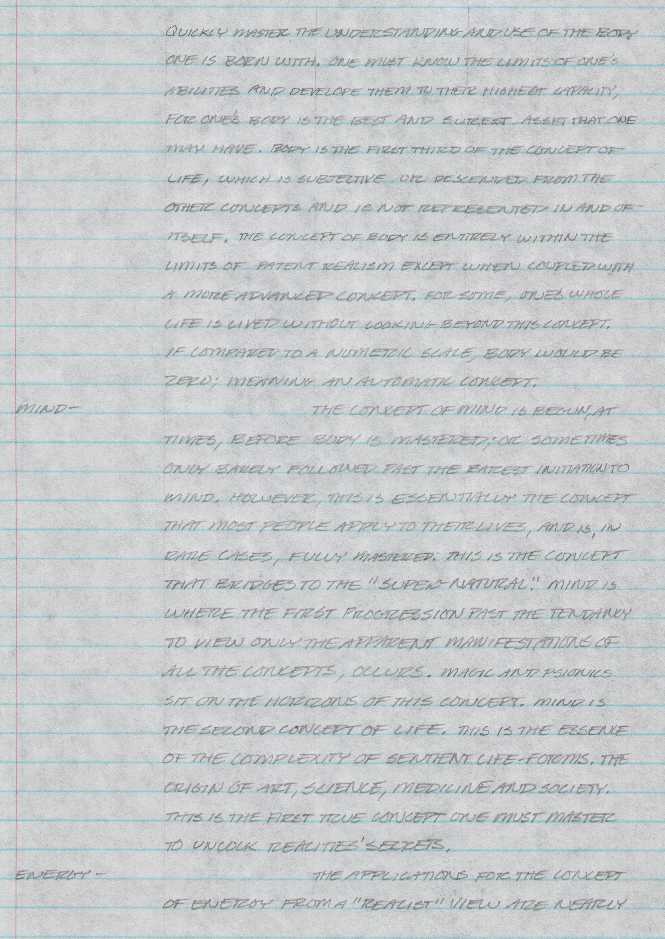 QUICKLY MASTER THE UNDERSTANDING AND USE OF THE BODY
ONE IS BORN WITH. ONE MUST KNOW THE LIMITS OF ONE'S
ABILITIES AND DEVELOPE THEM TO THEIR HIGHEST CAPACITY,
FOR ONE'S BODY IS THE BEST AND SUREST ASSET THAT ONE
MAY HAVE. BODY IS THE FIRST THIRD OF THE CONCEPT OF
LIFE, WHICH IS SUBJECTIVE OR DESCENDED FROM THE
OTHER CONCEPTS AND IS NOT REPRESENTED IN AND OF
ITSELF. THE CONCEPT OF BODY IS ENTIRELY WITHIN THE
LIMITS OF PATENT REALISM EXCEPT WHEN COUPLED WITH
A MORE ADVANCED CONCEPT. FOR SOME, ONE'S WHOLE
LIFE IS LIVED WITHOUT LOOKING BEYOND THIS CONCEPT.
IF COMPARED TO A NUMERIC SCALE, BODY WOULD BE
ZERO; MEANING AN AUTOMATIC CONCEPT.
MIND- THE CONCEPT OF MIND IS BEGUN, AT
TIMES, BEFORE BODY IS MASTERED; OR SOMETIMES
ONLY BARELY FOLLOWED PAST THE BAREST INITIATION TO
MIND. HOWEVER, THIS IS ESSENTIALLY THE CONCEPT
THAT MOST PEOPLE APPLY TO THEIR LIVES, AND IS, IN
RARE CASES, FULLY MASTERED. THIS IS THE CONCEPT
THAT BRIDGES TO THE "SUPER-NATURAL". MIND IS
WHERE THE FIRST PROGRESSION PAST THE TENDANCY
TO VIEW ONLY THE APPARENT MANIFESTATIONS OF
ALL THE CONCEPTS, OCCURS. MAGIC AND PSIONICS
SIT ON THE HORIZONS OF THIS CONCEPT. MIND IS
THE SECOND CONCEPT OF LIFE. THIS IS THE ESSENCE
OF THE COMPLEXITY OF SENTIENT LIFE-FORMS. THE
ORIGIN OF ART, SCIENCE, MEDICINE AND SOCIETY.
THIS IS THE FIRST TRUE CONCEPT ONE MUST MASTER
TO UNLOCK REALITIES' SECRETS.
ENERGY- THE APPLICATIONS FOR THE CONCEPT
OF ENERGY FROM A "REALIST" VIEW ARE NEARLY